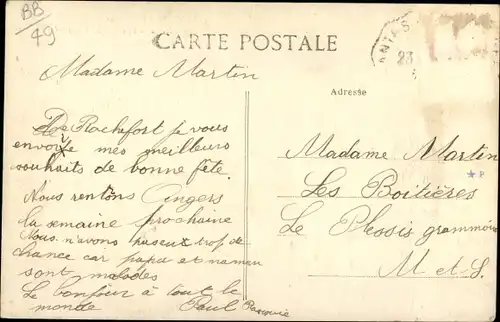 BB
49
CARTE POSTALE
23
Madame Martin
Adresse
De Rochefort je vous
envoie mes meilleurs
souhaits de bonne fête
Nous rentons Angers
la semaine prochaine
Nous n'avons pas eu trop de
chance car papa et maman
sont malades
Le bonjour à tout le
monde Paul
Madame Martin
Les Boitières
Le Plessis grammoire
M et L.